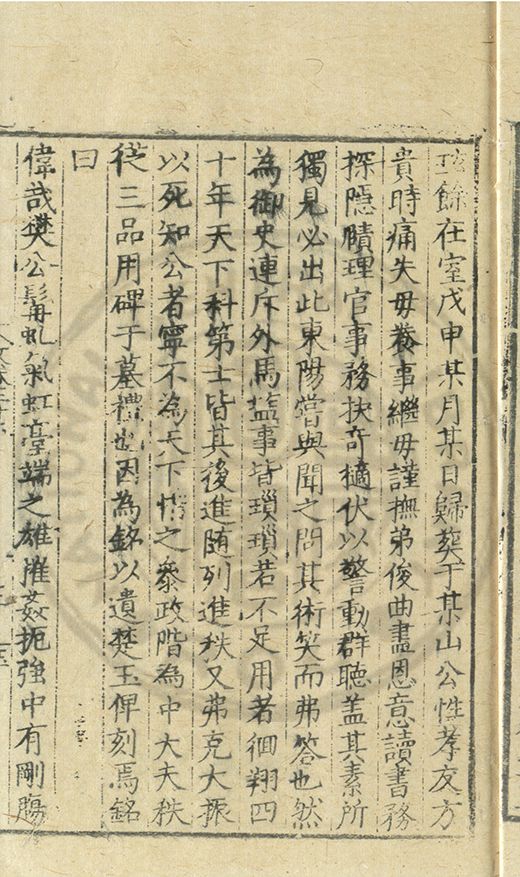 餘在室戊申某月某日歸葬于某山公性孝友方
貴時痛失毋養事繼毋謹撫弟俊曲盡恩意讀書務
探隱賾理官事務抉奇擿伏以警動群聽盖其素所
獨見必出此東陽嘗與聞之問其術笑而弗答也然
為御史連斥外馬監事皆瑣瑣若不足用者徊翔四
十年天下科第士皆其後進随列進秩又弗克大振
以死知公者寧不為天下惜之叅政階為中大夫秩
從三品用碑于墓禮也因為銘以遺楚玉俾刻焉銘
曰
偉哉樊公髯虬氣虹臺端之雄摧姦扼強中有剛腸